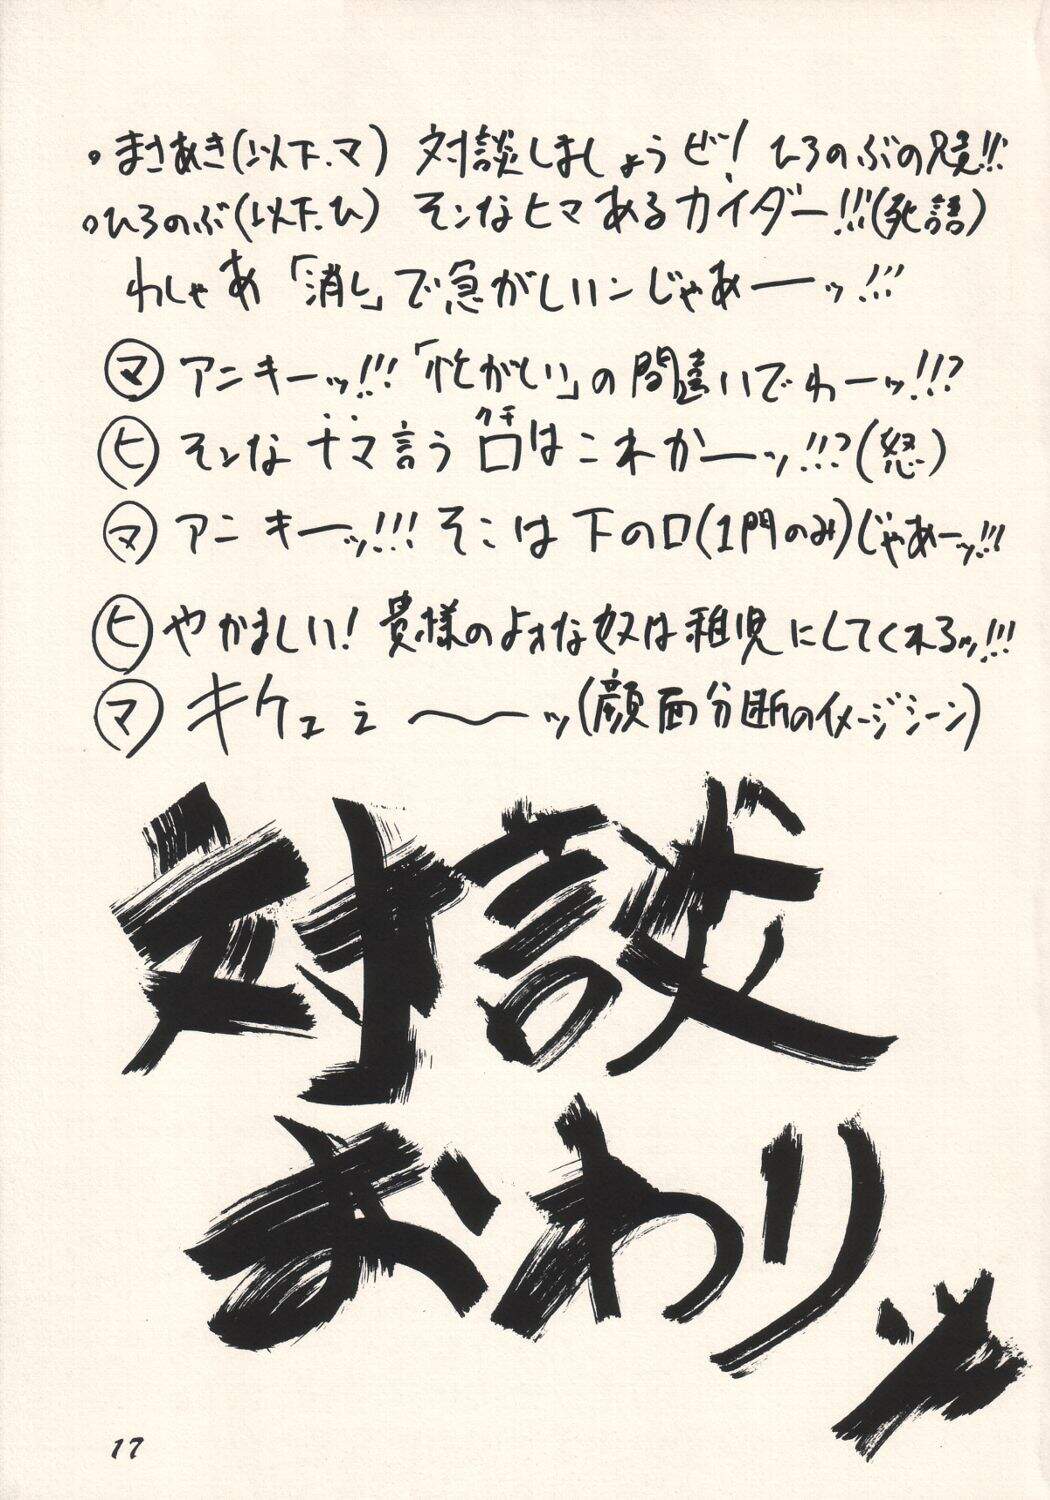 。まさあき(以下.マ) 対談しましょうぜ! ひろのぶの兄貴!!!
。ひろのぶ(以下.ひ) そンなヒマあるカイダー!!!(死語)
わしゃあ「消し」で急がしいンじゃあーーッ!!!
㋮ アニキーッ!!!「忙がしい」の間違いでわーッ!!?
㋪ そンなナマ言う口はこれかーーッ!!!?(怒)
クチ
㋮ アニキーッ!!! そこは下の口(1門のみ)じゃあーッ!!!
㋪ やかましい! 貴様のよォな奴は稚児にしてくれるッ!!!
㋮ キケェェ〜〜ーッ(顔面分断のイメージシーン)
対談
おわりッ
17